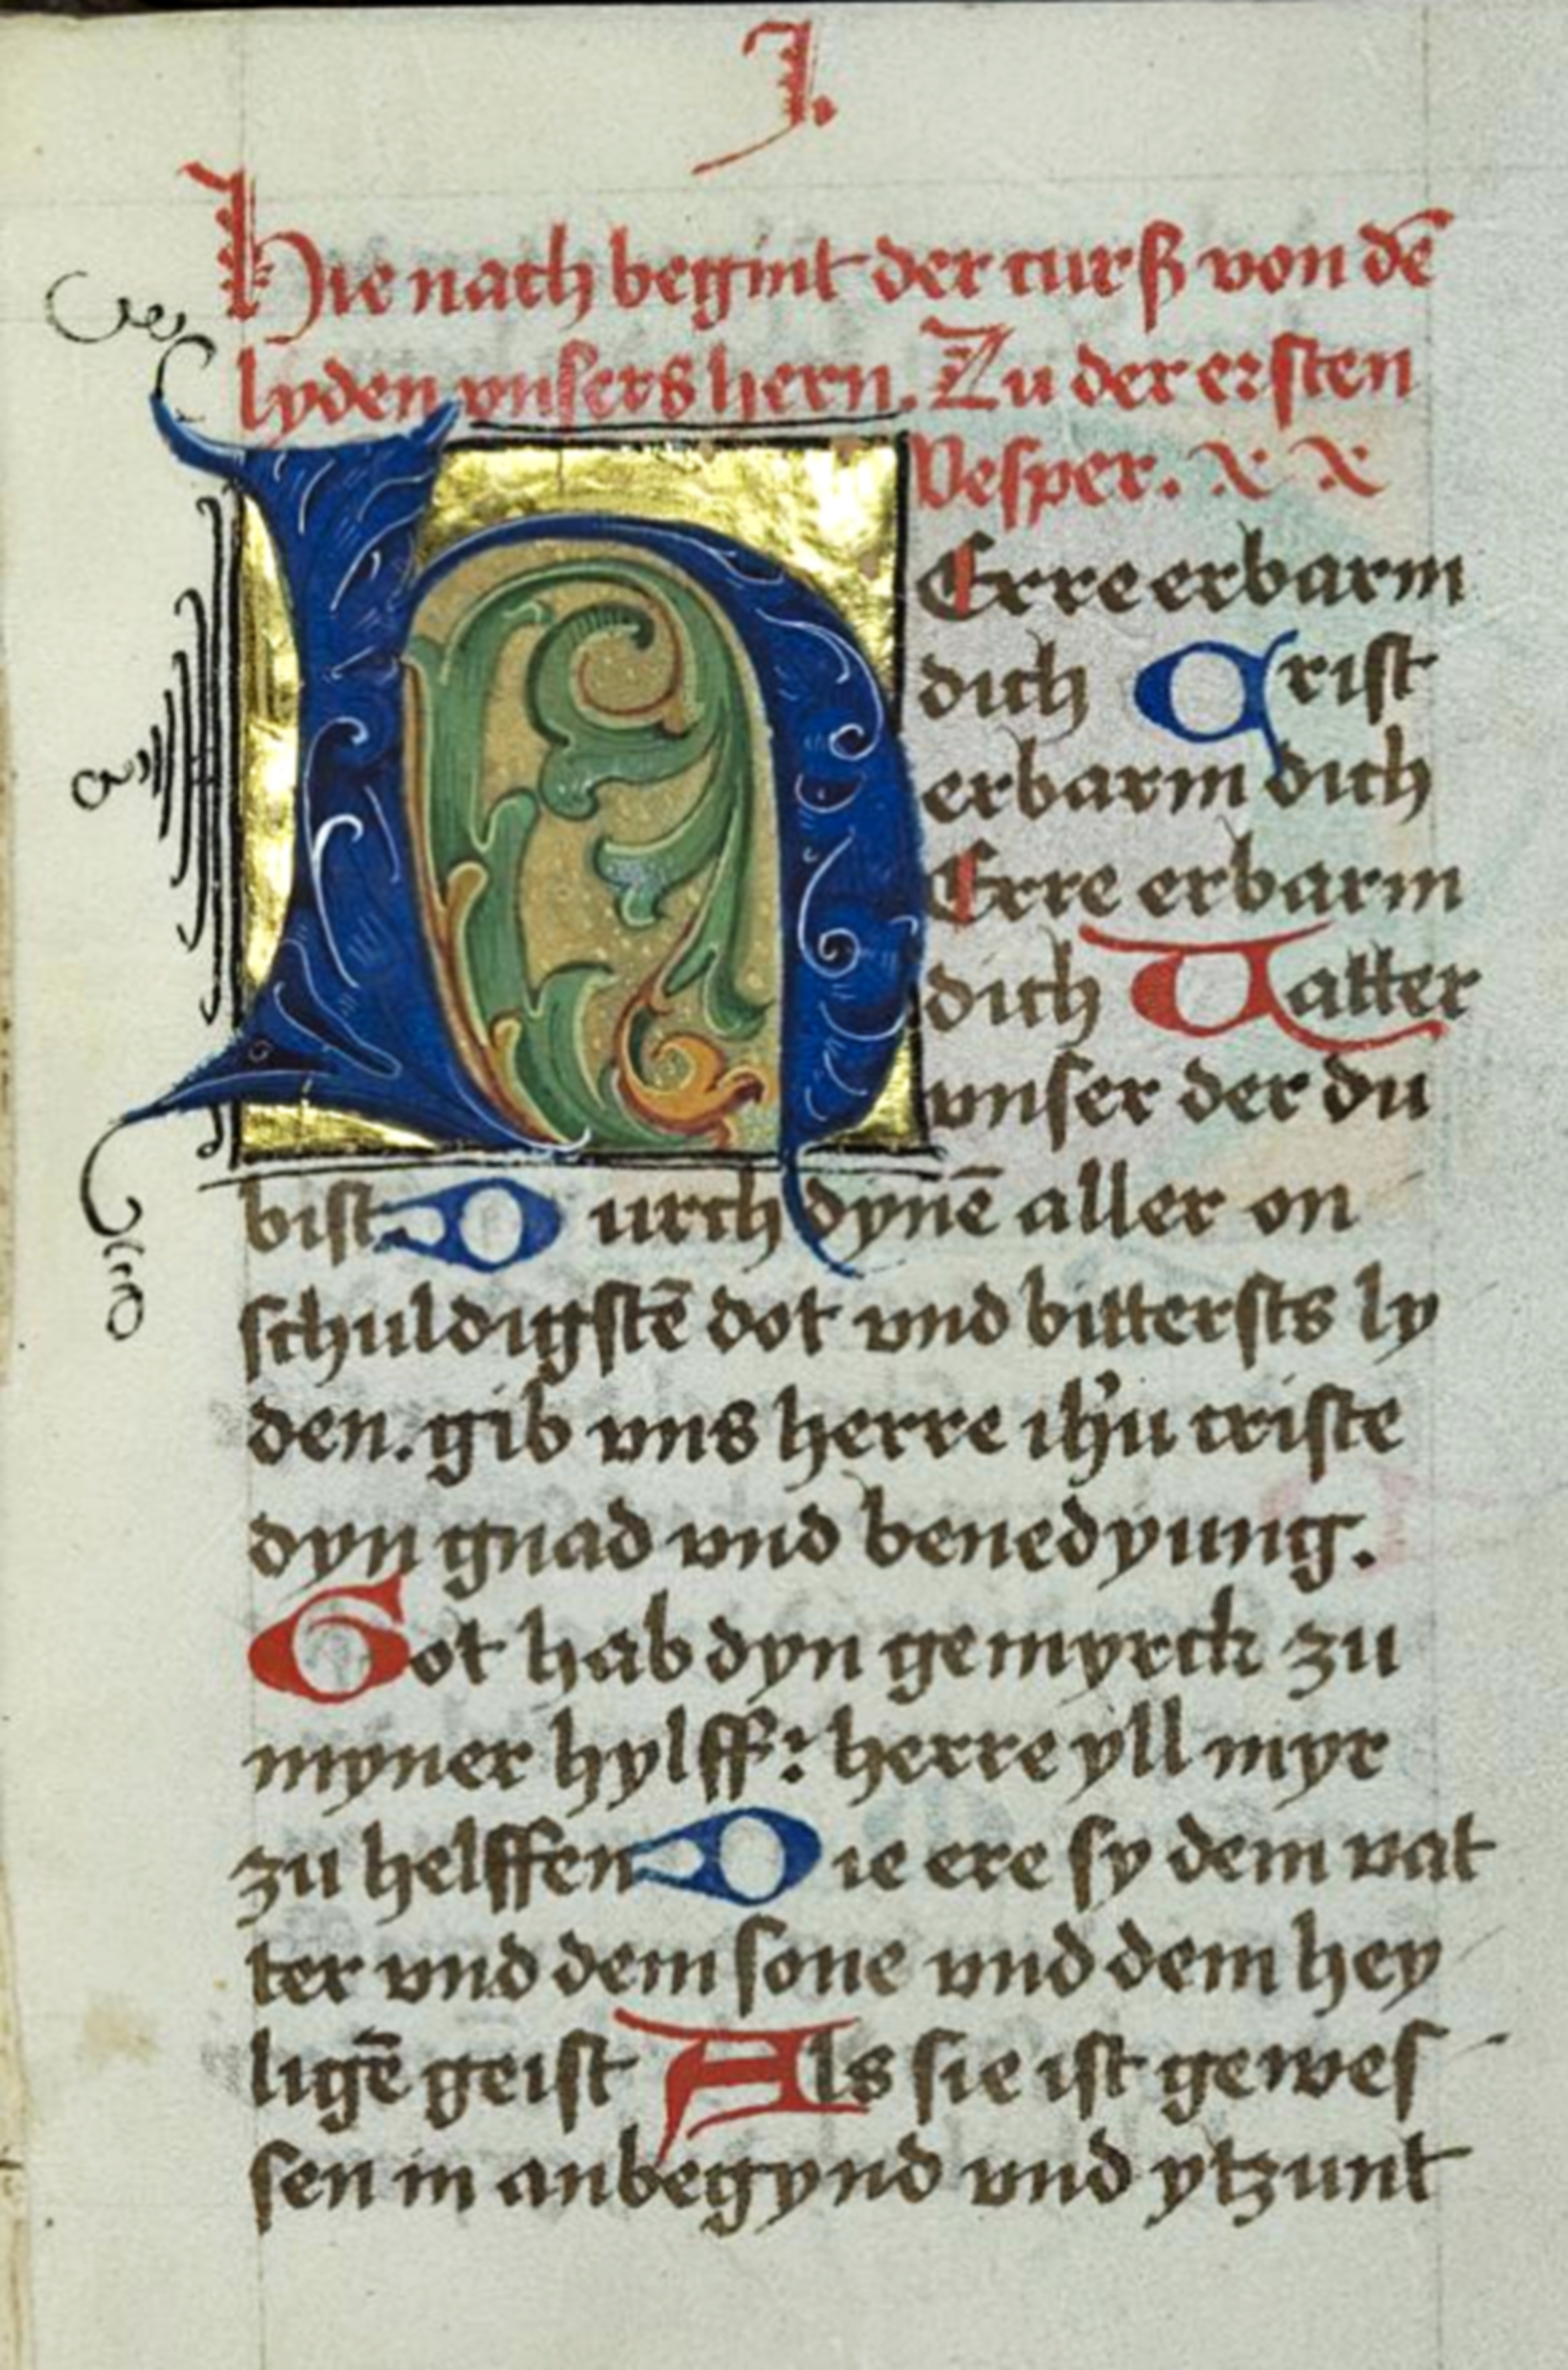 J.
Hie nach begint der curß von dē
lyden vnsers hern. Zu der ersten
Vesper. x x
HErre erbarm
dich Crist
erbarm dich
Erre erbarm
dich Vatter
vnser der du
bist Durch dynē aller on
schuldigstē dot vnd bitterſts ly
den. gib vns herre ih'u criste
dyn gnad vnd benedyung.
Got hab dyn gemyrck zu
myner hylff: herre yll myr
zu helffen Die ere sy dem vat
ter vnd dem sone vnd dem hey
ligē geist Als sie ist gewes
sen in anbegynd vnd ytzunt